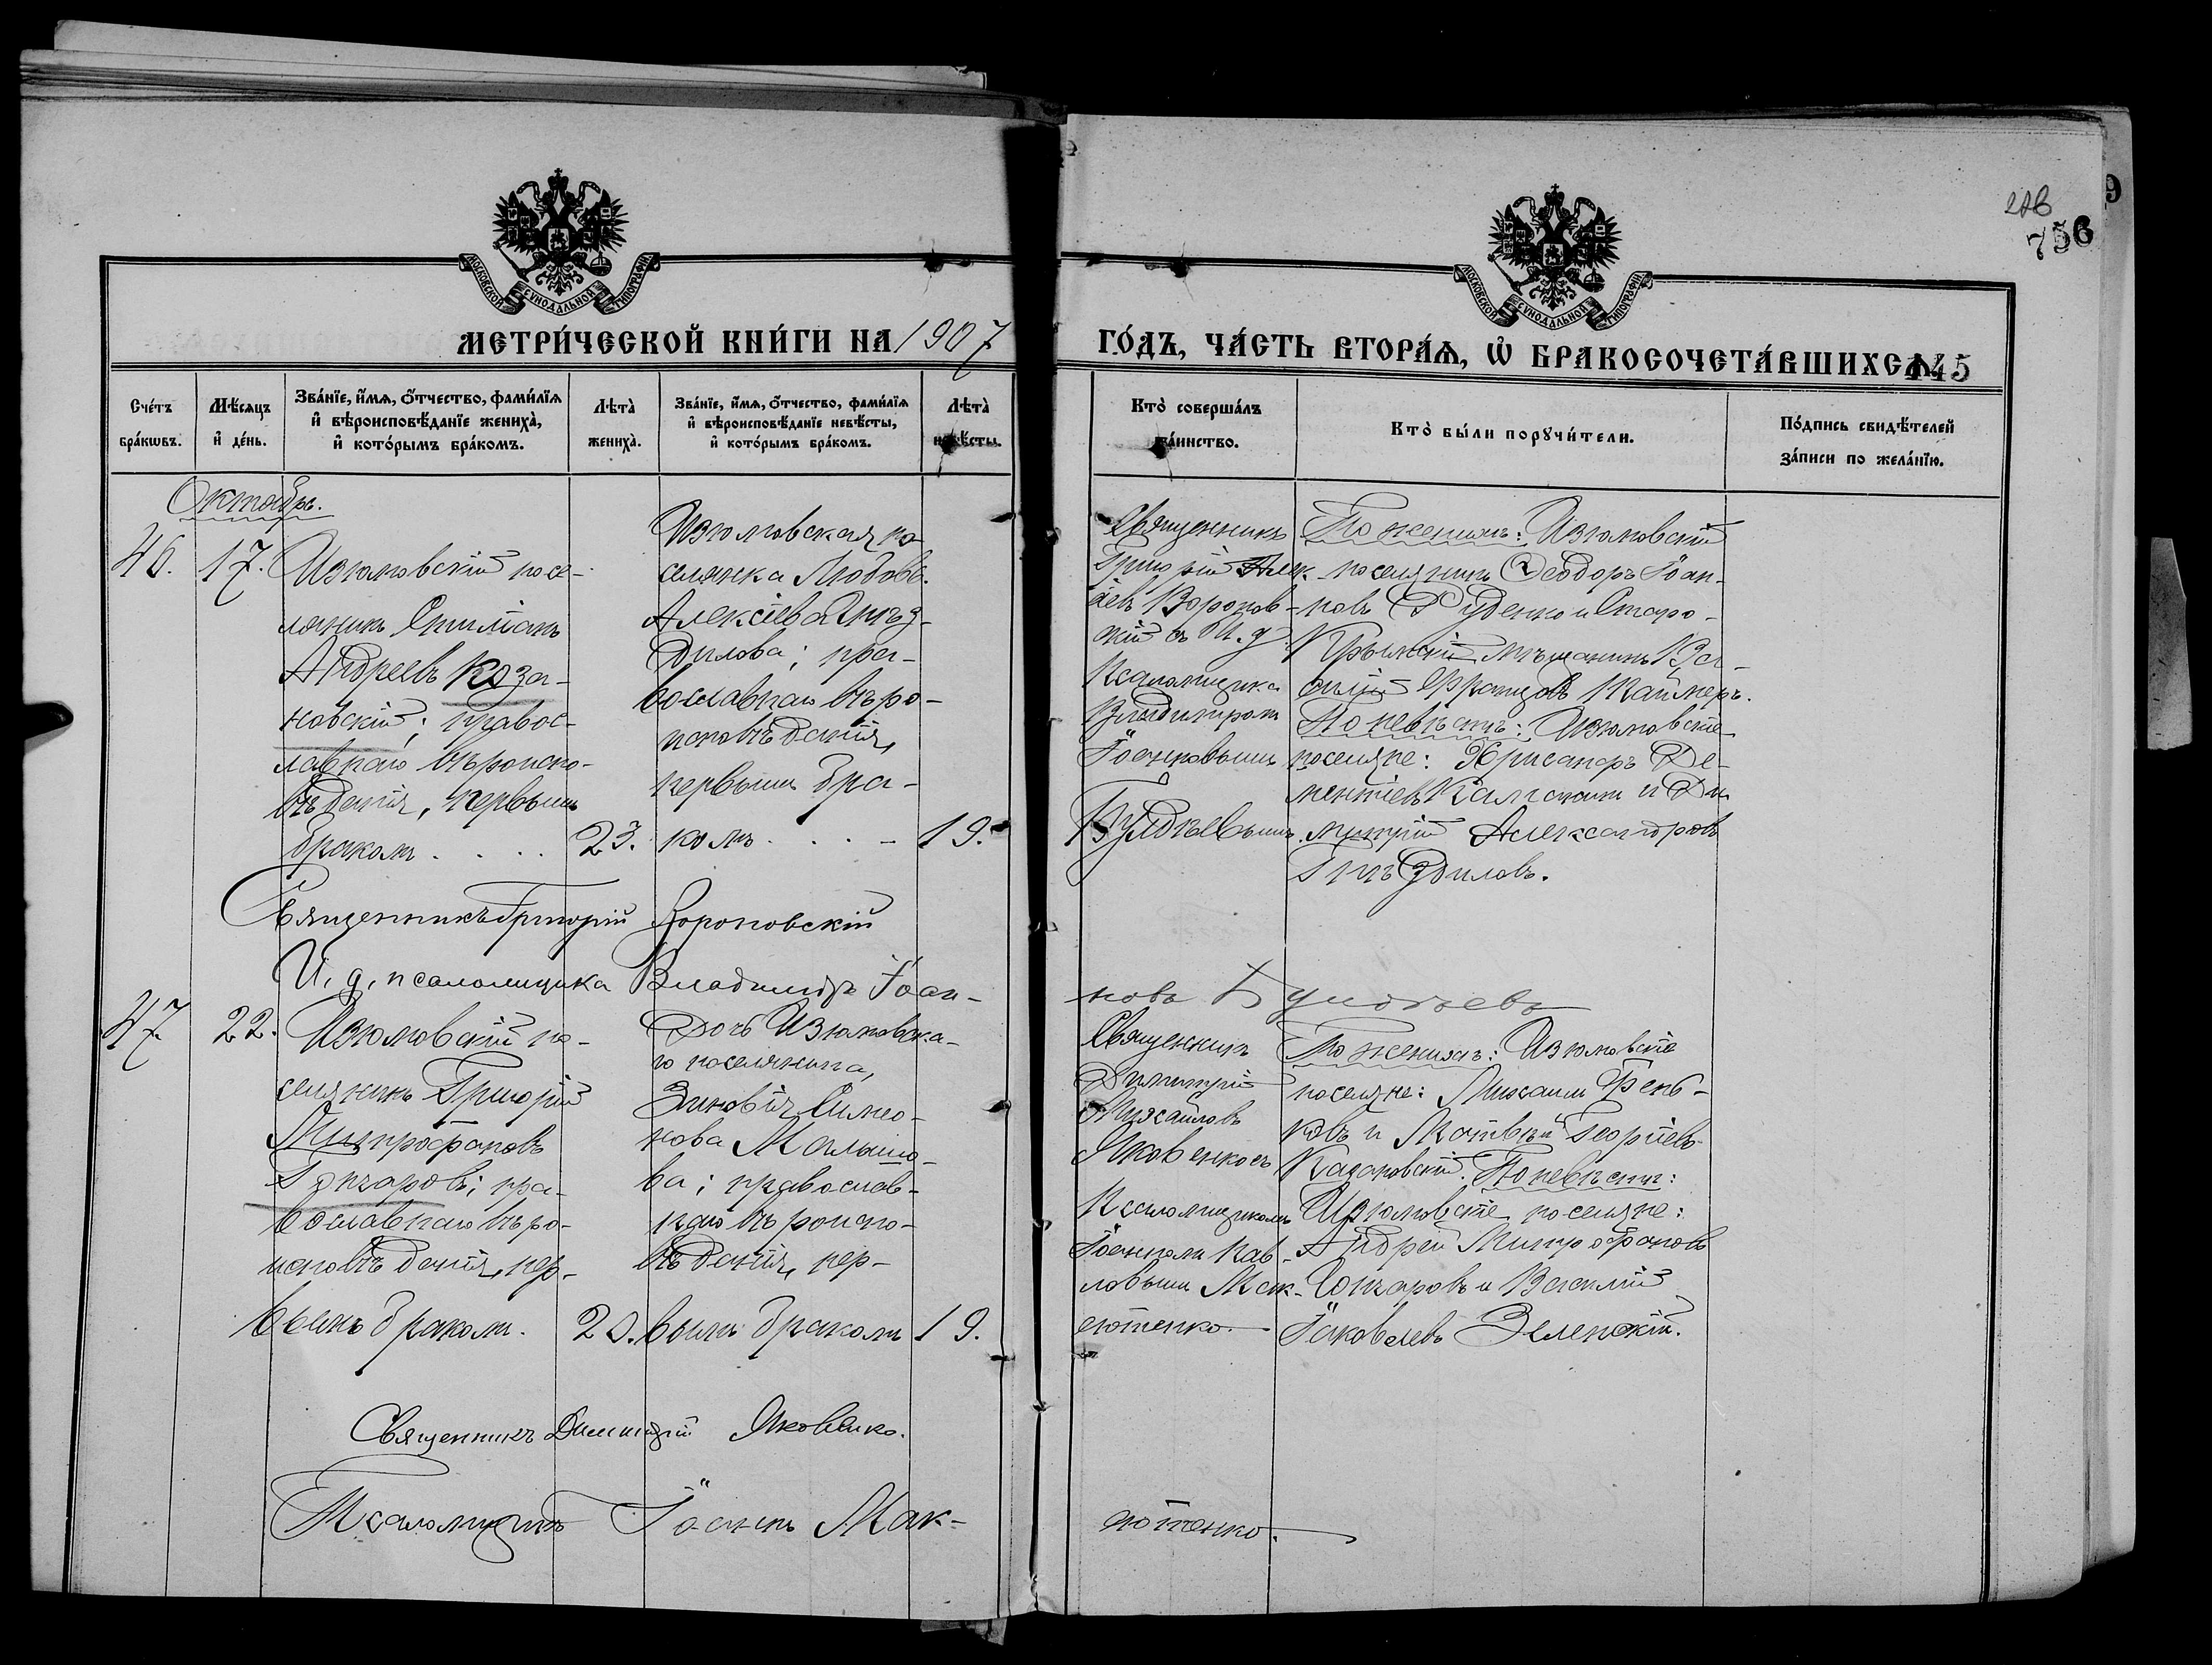 756
МОСКОВСКОЙ СУНОДАЛЬНОЙ ТИПОГРАФІИ
МОСКОВСКОЙ СУНОДАЛЬНОЙ ТИПОГРАФІИ
МЕТРИ́ЧЕСКОЙ КНИ́ГИ НА 1907
ГО́ДЪ, ЧА́СТЬ ВТОРА́Ѧ, Ѽ БРАКОСОЧЕТА́ВШИХСѦ.
145
Сче́тъ
бра́кѡвъ.
Мѣ́сяцъ
и҆ де́нь.
Зва́нїе, и҆́мѧ, ѻ҆́тчество, фами́лїѧ
и҆ вѣроисповѣ́данїе жениха̀,
и҆ кото́рымъ бра́комъ.
Лѣта̀
жениха̀.
Зва́нїе, и҆́мѧ, ѻ҆́тчество, фами́лїѧ
и҆ вѣроисповѣ́данїе невѣ́сты,
и҆ кото́рымъ бра́комъ.
Лѣта̀
невѣ́сты.
Кто̀ соверша́лъ
та́инство.
Кто̀ бы́ли порꙋчи́тели.
По́дпись свидѣ́телей
за́писи по жела́нїю.
Октябрь.
46.
17.
Изюмовскій посе-
лянинъ
Андреевъ Коза-
новскій; правос-
лавнаго вѣроиспо-
вѣданія, первымъ
бракомъ . . . .
23.
Изюмовская по-
селянка Любовь
Алексіева Гнѣз-
дилова; пра-
вославнаго вѣро-
исповѣданія,
первымъ бра-
комъ . . . -
19.
Священникъ
Григорій Алек-
ѣевъ Воронов-
скій съ И. д.
Псаломщика
Владиміромъ
Іоанновымъ
Булдѣевымъ.
По женихѣ: Изюмовскій
поселянинъ Ѳеодоръ Іоан-
новъ Руденко и Старо-
Крымскій мѣщанинъ Ва-
силій Францовъ Каймеръ.
По невѣстѣ: Изюмовскіе
поселяне: Хрисанфъ Де-
ментіевъ и Ди-
митрій Александровъ
Гнѣздиловъ.
Священникъ Григорій Вороновскій
И. д. псаломщика Владиміръ Іоан-
новъ Булдѣевъ
47
22.
Изюмовскій по-
селянинъ Григорій
Митрофановъ
Гончаровъ; пра-
вославнаго вѣро-
исповѣданія, пер-
вымъ бракомъ.
20.
Дочь Изюмовска-
го поселянина,
Зиновія Симео-
нова Малышо-
ва; православ-
наго вѣроиспо-
вѣданія, пер-
вымъ бракомъ
19.
Священникъ
Димитрій
Михайловъ
Яковенко съ
Псаломщикомъ
Іоанномъ Пав-
ловымъ Мак-
сютенко.
По женихѣ: Изюмовскіе
поселяне: Михаилъ Фень-
ковъ и Матвѣй Георгіевъ
Казановскій. По невѣстѣ:
Изюмовскіе поселяне:
Андрей Митрофановъ
Гончаровъ и Василій
Іаковлевъ Зеленскій.
Священникъ Димитрій Яковенко.
Псаломщикъ Іоаннъ Мак-
сютенко.